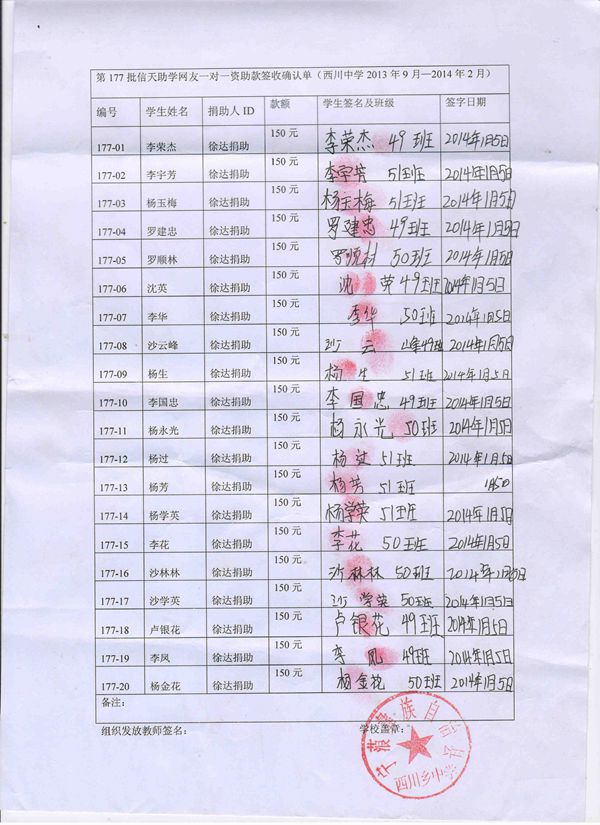 第 177 批信天助学网友一对一资助款签收确认单（西川中学 2013 年 9 月—2014 年 2 月）
编号 学生姓名 捐助人 ID 款额 学生签名及班级 签字日期
177-01 李荣杰 徐达捐助 150 元 李荣杰 49班 2014年1月5日
177-02 李宇芳 徐达捐助 150 元 李宇芳 51班 2014年1月5日
177-03 杨玉梅 徐达捐助 150 元 杨玉梅 51班 2014年1月5日
177-04 罗建忠 徐达捐助 150 元 罗建忠 49班 2014年1月5日
177-05 罗顺林 徐达捐助 150 元 50班 2014年1月5日
177-06 沈英 徐达捐助 150 元 沈 49班 2014年1月5日
177-07 李华 徐达捐助 150 元 李华 50班 2014年1月5日
177-08 沙云峰 徐达捐助 150 元 沙 云 峰49班 2014年1月5日
177-09 杨生 徐达捐助 150 元 杨生 51班 2014年1月5日
177-10 李国忠 徐达捐助 150 元 李国忠 49班 2014年1月5日
177-11 杨永光 徐达捐助 150 元 杨永光 50班 2014年1月5日
177-12 杨过 徐达捐助 150 元 杨过 51班 2014年1月5日
177-13 杨芳 徐达捐助 150 元 杨芳 51班
177-14 杨学英 徐达捐助 150 元 杨学英 51班 2014年1月5日
177-15 李花 徐达捐助 150 元 李花 50班 2014年1月5日
177-16 沙林林 徐达捐助 150 元 沙林林 50班 2014年1月5日
177-17 沙学英 徐达捐助 150 元 沙学英 50班 2014年1月5日
177-18 卢银花 徐达捐助 150 元 卢银花 49班 2014年1月5日
177-19 李凤 徐达捐助 150 元 李凤 49班 2014年1月5日
177-20 杨金花 徐达捐助 150 元 杨金花 50班 2014年1月5日
备注：
组织发放教师签名： 学校盖章：
宁蒗彝族自治县
西川乡中学